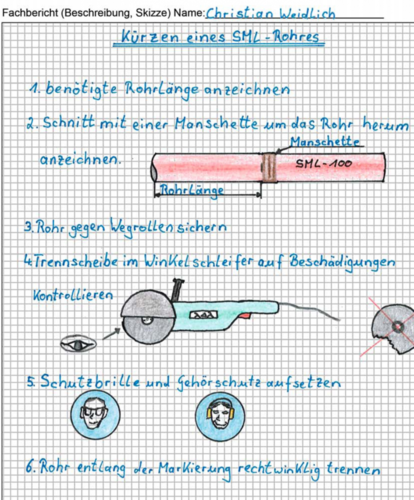 Fachbericht (Beschreibung, Skizze) Name: Christian Weidlich
Kürzen eines SML-Rohres
1. benötigte Rohrlänge anzeichnen
2. Schnitt mit einer Manschette um das Rohr herum
anzeichnen.
Manschette
SML-100
Rohrlänge
3. Rohr gegen Wegrollen sichern
4. Trennscheibe im Winkelschleifer auf Beschädigungen
Kontrollieren
5. Schutzbrille und Gehörschutz aufsetzen
6. Rohr entlang der Markierung rechtwinklig trennen